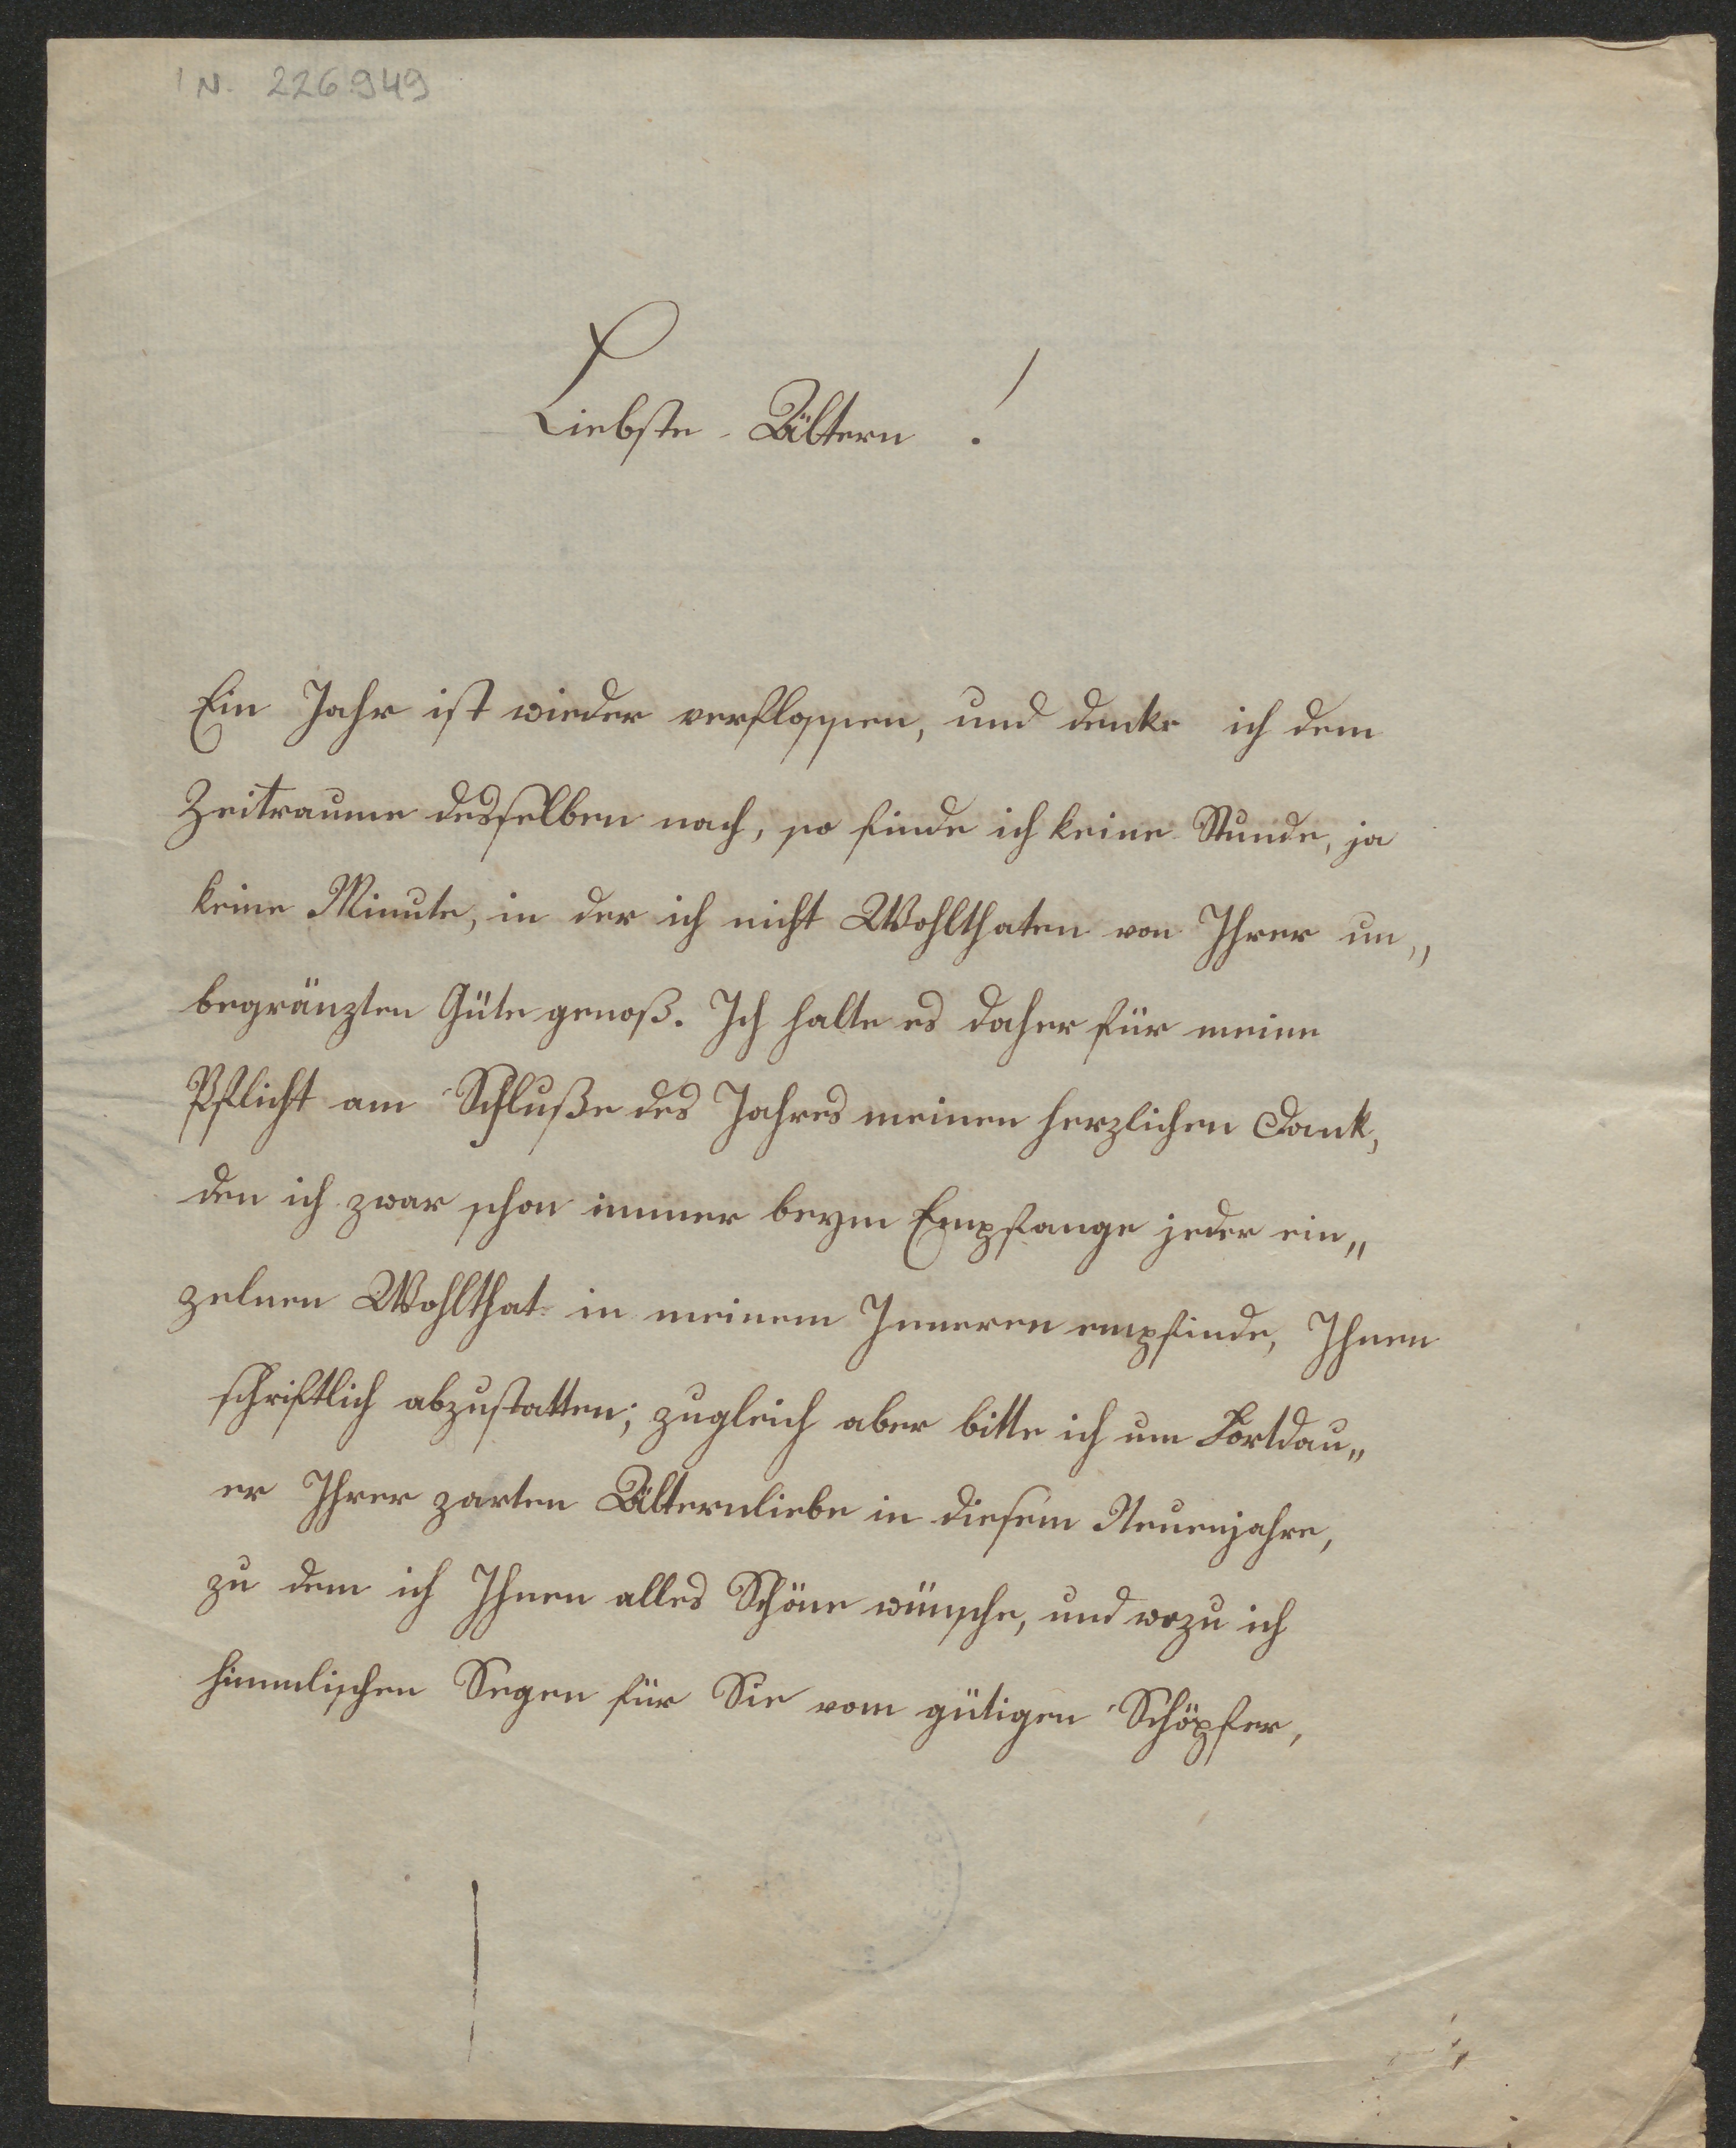 IN. 226.949
Liebste Ältern!
Ein Jahr ist wieder verflossen, und denke ich dem
Zeitraume desselben nach, so finde ich keine Stunde, ja
keine Minute, in der ich nicht Wohlthaten von Ihrer un„
begränzten Güte genoß. Ich halte es daher für meine
Pflicht am Schluße des Jahres meinen herzlichen Dank,
den ich zwar schon immer beym Empfange jeder ein„
zelnen Wohlthat in meinem Inneren empfinde, Ihnen
schriftlich abzustatten; zugleich aber bitte ich um Fortdau„
er Ihrer zarten Älternliebe in diesem Neuenjahre,
zu dem ich Ihnen alles Schöne wünsche, und wozu ich
himmlischen Segen für Sie vom gütigen Schöpfer,